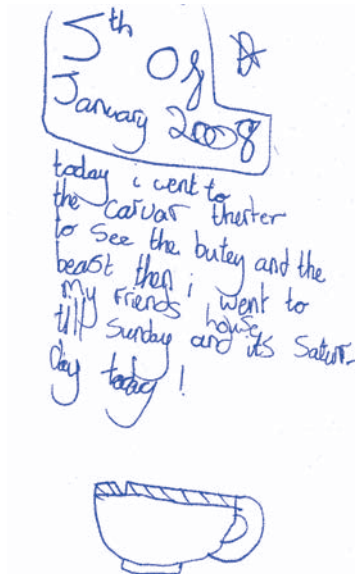 5th
Of
January 2008
today i went to
the carvar therter
to see the butey and the
beast then i went to
my friends house
till sunday and its Satur-
day today !